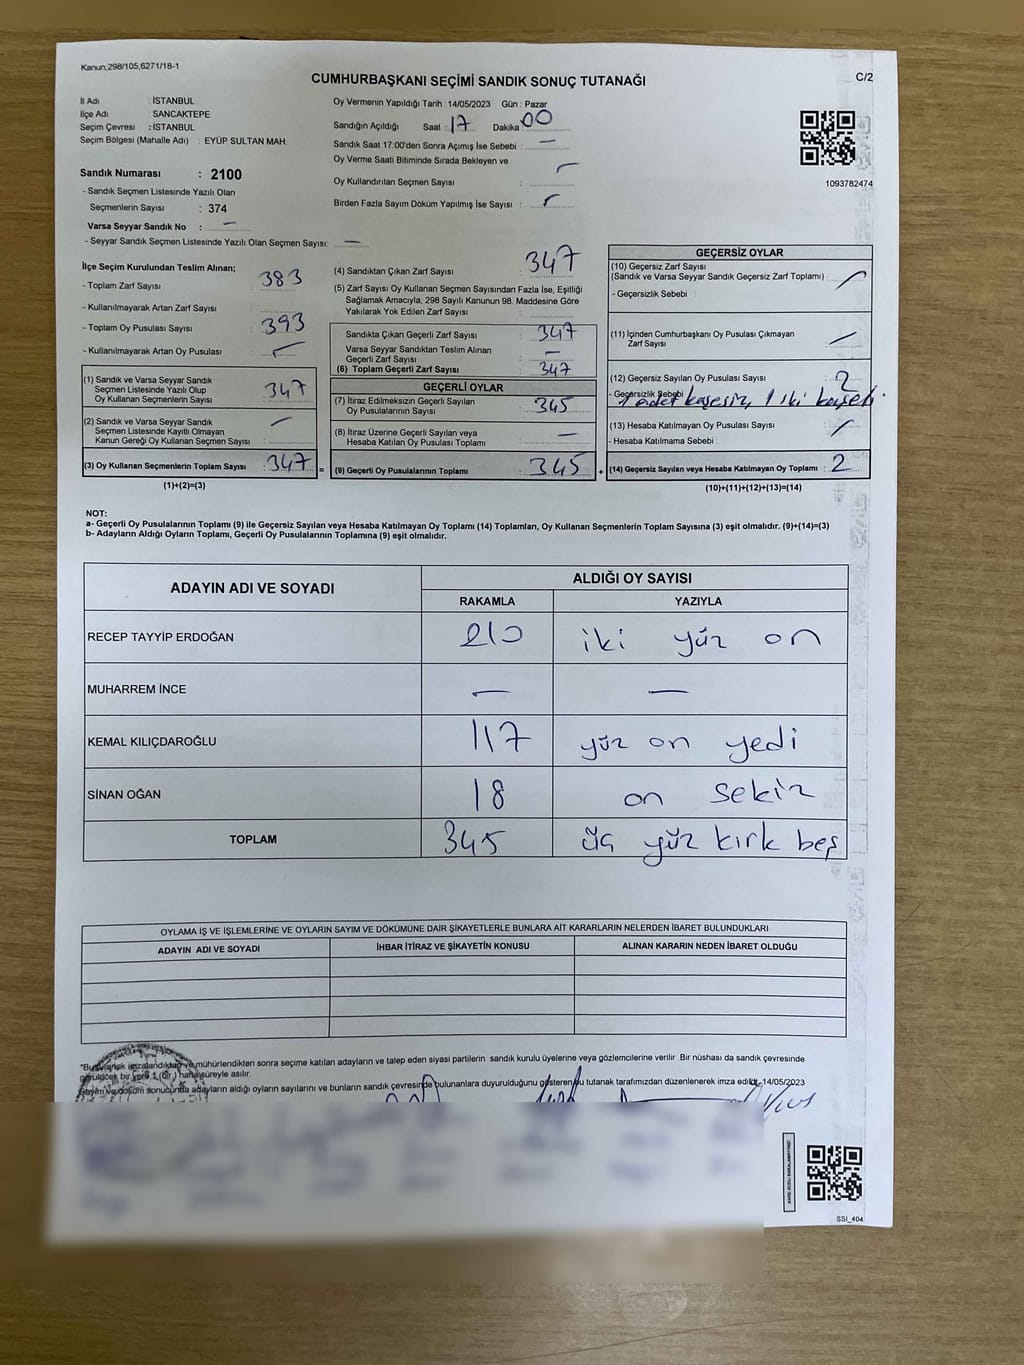 Kanun,298/105,6271/18-1
CUMHURBAŞKANI SEÇİMİ SANDIK SONUÇ TUTANAĞI
C/2
İl Adı : İSTANBUL
İlçe Adı : SANCAKTEPE
Seçim Çevresi : İSTANBUL
Seçim Bölgesi (Mahalle Adı) : EYÜP SULTAN MAH.
Sandık Numarası : 2100
- Sandık Seçmen Listesinde Yazılı Olan
Seçmenlerin Sayısı : 374
Varsa Seyyar Sandık No : —
- Seyyar Sandık Seçmen Listesinde Yazılı Olan Seçmen Sayısı: —
Oy Vermenin Yapıldığı Tarih : 14/05/2023 Gün : Pazar
Sandığın Açıldığı Saat : 17 Dakika : 00
Sandık Saat 17:00'den Sonra Açılmış İse Sebebi : —
Oy Verme Saati Bitiminde Sırada Bekleyen ve
Oy Kullandırılan Seçmen Sayısı :
Birden Fazla Sayım Döküm Yapılmış İse Sayısı :
1093782474
İlçe Seçim Kurulundan Teslim Alınan;
- Toplam Zarf Sayısı : 383
- Kullanılmayarak Artan Zarf Sayısı :
- Toplam Oy Pusulası Sayısı : 393
- Kullanılmayarak Artan Oy Pusulası :
(1) Sandık ve Varsa Seyyar Sandık
Seçmen Listesinde Yazılı Olup
Oy Kullanan Seçmenlerin Sayısı : 347
(2) Sandık ve Varsa Seyyar Sandık
Seçmen Listesinde Kayıtlı Olmayan
Kanun Gereği Oy Kullanan Seçmen Sayısı : —
(3) Oy Kullanan Seçmenlerin Toplam Sayısı : 347 =
(1)+(2)=(3)
(4) Sandıktan Çıkan Zarf Sayısı : 347
(5) Zarf Sayısı Oy Kullanan Seçmen Sayısından Fazla İse, Eşitliği
Sağlamak Amacıyla, 298 Sayılı Kanunun 98. Maddesine Göre
Yakılarak Yok Edilen Zarf Sayısı :
Sandıkta Çıkan Geçerli Zarf Sayısı : 347
Varsa Seyyar Sandıktan Teslim Alınan
Geçerli Zarf Sayısı : —
(6) Toplam Geçerli Zarf Sayısı : 347
GEÇERLİ OYLAR
(7) İtiraz Edilmeksizin Geçerli Sayılan
Oy Pusulalarının Sayısı : 345
(8) İtiraz Üzerine Geçerli Sayılan veya
Hesaba Katılan Oy Pusulası Toplamı : —
(9) Geçerli Oy Pusulalarının Toplamı : 345 +
GEÇERSİZ OYLAR
(10) Geçersiz Zarf Sayısı
(Sandık ve Varsa Seyyar Sandık Geçersiz Zarf Toplamı) :
- Geçersizlik Sebebi :
(11) İçinden Cumhurbaşkanı Oy Pusulası Çıkmayan
Zarf Sayısı :
(12) Geçersiz Sayılan Oy Pusulası Sayısı : 2
- Geçersizlik Sebebi : 1 adet kaşesiz, 1 iki kaşeli.
(13) Hesaba Katılmayan Oy Pusulası Sayısı :
- Hesaba Katılmama Sebebi :
(14) Geçersiz Sayılan veya Hesaba Katılmayan Oy Toplamı : 2
(10)+(11)+(12)+(13)=(14)
NOT:
a- Geçerli Oy Pusulalarının Toplamı (9) ile Geçersiz Sayılan veya Hesaba Katılmayan Oy Toplamı (14) Toplamları, Oy Kullanan Seçmenlerin Toplam Sayısına (3) eşit olmalıdır. (9)+(14)=(3)
b- Adayların Aldığı Oyların Toplamı, Geçerli Oy Pusulalarının Toplamına (9) eşit olmalıdır.
ADAYIN ADI VE SOYADI
ALDIĞI OY SAYISI
RAKAMLA YAZIYLA
RECEP TAYYİP ERDOĞAN 210 iki yüz on
MUHARREM İNCE — —
KEMAL KILIÇDAROĞLU 117 yüz on yedi
SİNAN OĞAN 18 on sekiz
TOPLAM 345 üç yüz kırk beş
OYLAMA İŞ VE İŞLEMLERİNE VE OYLARIN SAYIM VE DÖKÜMÜNE DAİR ŞİKAYETLERLE BUNLARA AİT KARARLARIN NELERDEN İBARET BULUNDUKLARI
ADAYIN ADI VE SOYADI İHBAR İTİRAZ VE ŞİKAYETİN KONUSU ALINAN KARARIN NEDEN İBARET OLDUĞU
*Bu tutanak imzalandıktan ve mühürlendikten sonra seçime katılan adayların ve talep eden siyasi partilerin sandık kurulu üyelerine veya gözlemcilerine verilir. Bir nüshası da sandık çevresinde
görülecek bir yere 1 (bir) hafta süreyle asılır.
Sayım ve döküm sonucunda adayların aldığı oyların sayılarını ve bunların sandık çevresinde bulunanlara duyurulduğunu gösteren bu tutanak tarafımızdan düzenlenerek imza edildi. 14/05/2023
SSI_404